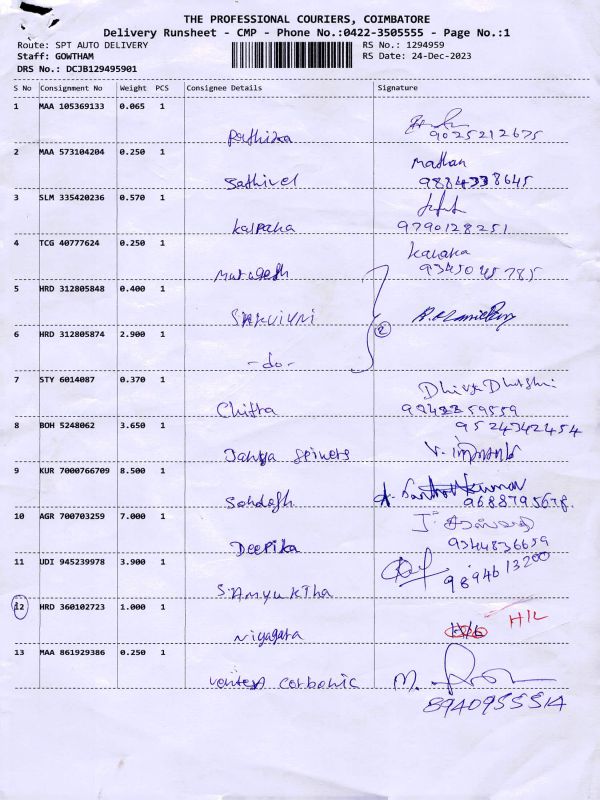 THE PROFESSIONAL COURIERS, COIMBATORE
Delivery Runsheet - CMP - Phone No.:0422-3505555 - Page No.:1
Route: SPT AUTO DELIVERY RS No.: 1294959
Staff: GOWTHAM RS Date: 24-Dec-2023
DRS No.: DCJB129495901
S No Consignment No Weight PCS Consignee Details Signature
1 MAA 105369133 0.065 1
Rathika 9025212675
2 MAA 573104204 0.250 1 Mathan
Sathivel 9884338645
3 SLM 335420236 0.570 1
Kalpana 9790128251
4 TCG 40777624 0.250 1 Kanaka
Murugesh 9345045785
5 HRD 312805848 0.400 1
2
6 HRD 312805874 2.900 1
-do-
7 STY 6014087 0.370 1
Chitra
8 BOH 5248062 3.650 1 9524342454
Spiners
9 KUR 7000766709 8.500 1 Santhosh Kumar
9688795678
10 AGR 700703259 7.000 1
Deepika 9344836659
11 UDI 945239978 3.900 1 9894613200
SAmyuktha
12 HRD 360102723 1.000 1 H/L
Niyagara
13 MAA 861929386 0.250 1
Carbonic M.
8940955514